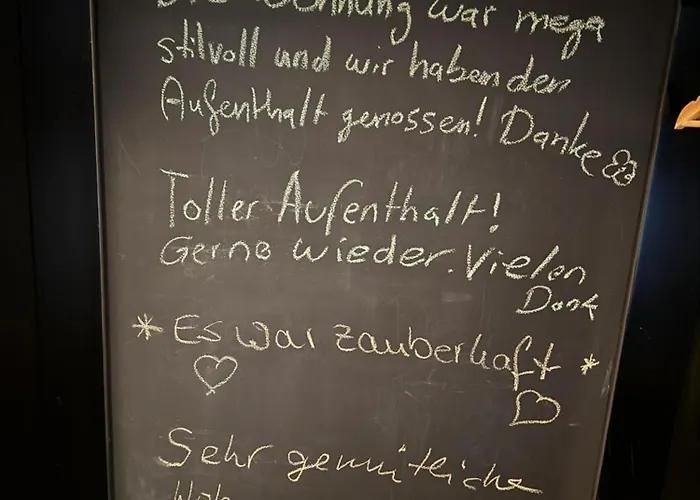 Die Wohnung war mega
stilvoll und wir haben den
Aufenthalt genossen! Danke
Toller Aufenthalt!
Gerne wieder. Vielen
Dank
* Es war zauberhaft *
Sehr gemütliche
Woh